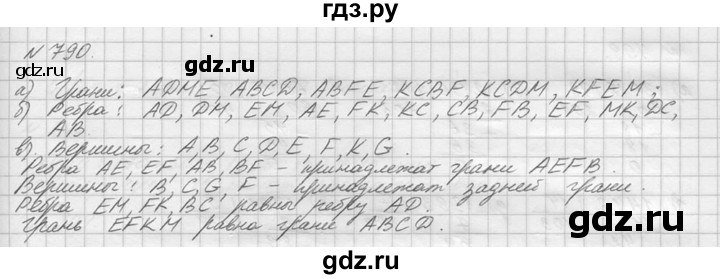 гдз.ру
N 790.
а) Грани: ADME, ABCD, ABFE, KCBF, KCDM, KFEM;
б) Ребра: AD, DM, EM, AE, FK, KC, CB, FB, EF, MK, DC,
AB.
в) Вершины: A, B, C, D, E, F, K, G.
Ребра AE, EF, AB, BF – принадлежат грани AEFB.
Вершины: B, C, G, F – принадлежат задней грани.
Ребра EM, FK, BC равны ребру AD.
Грань EFKM равна грани ABCD.
gdz.ru
gdz.ru
gdz.ru